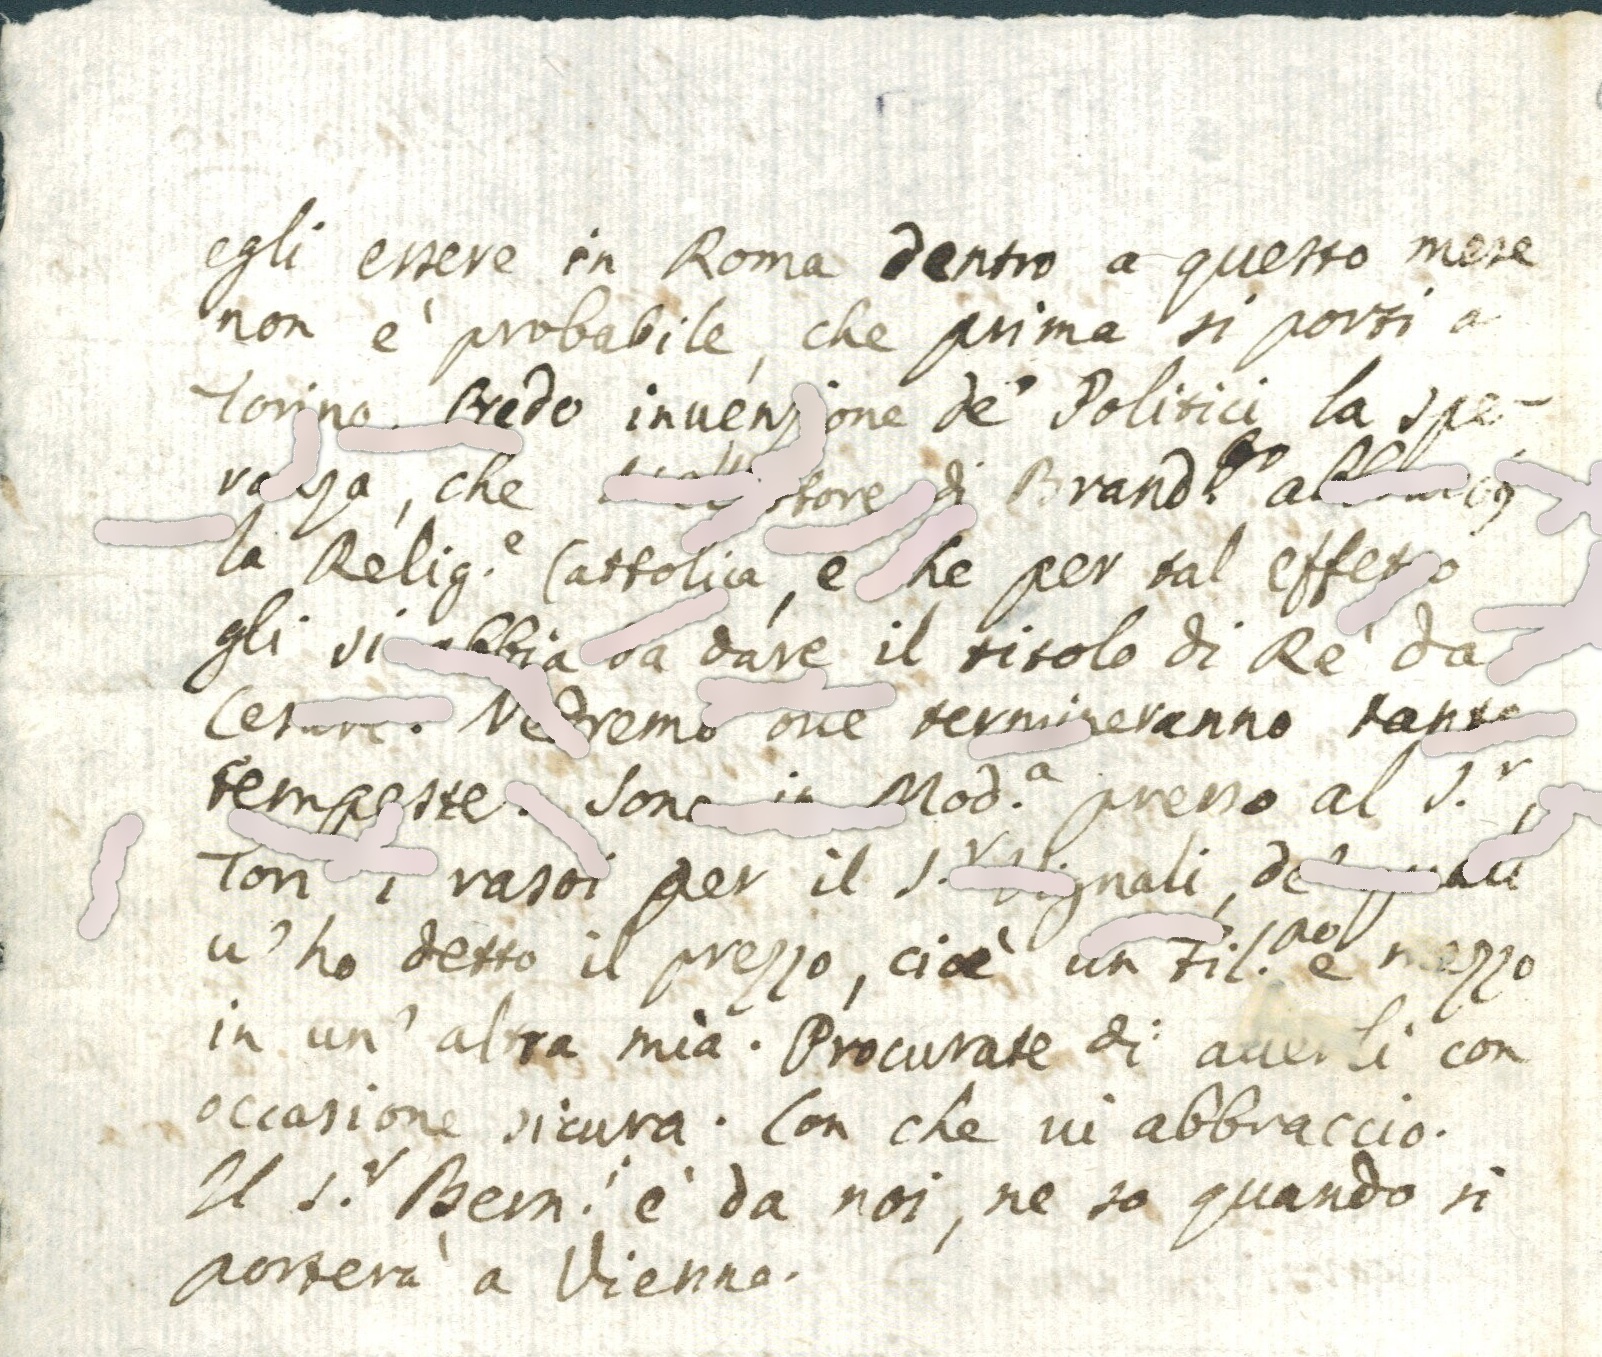 egli essere in Roma dentro a questo mese
non è probabile, che prima si porti a
Torino. Credo invenzione de' Politici la spe-
ranza, che di Brand.go
la Relig.e Cattolica, e che per tal effetto
gli si abbia da dare il titolo di Rè da
Cesare. Vedremo ove termineranno tante
tempeste. Sono in Mod.a presso al S.r
Tori i rasoi per il S.r Vignali, de' quali
v'ho detto il prezzo, cioè un fil.po e mezzo
in un' altra mia. Procurate di averli con
occasione sicura. Con che vi abbraccio.
Il S.r Bern.i è da noi, ne so quando si
porterà a Vienna.